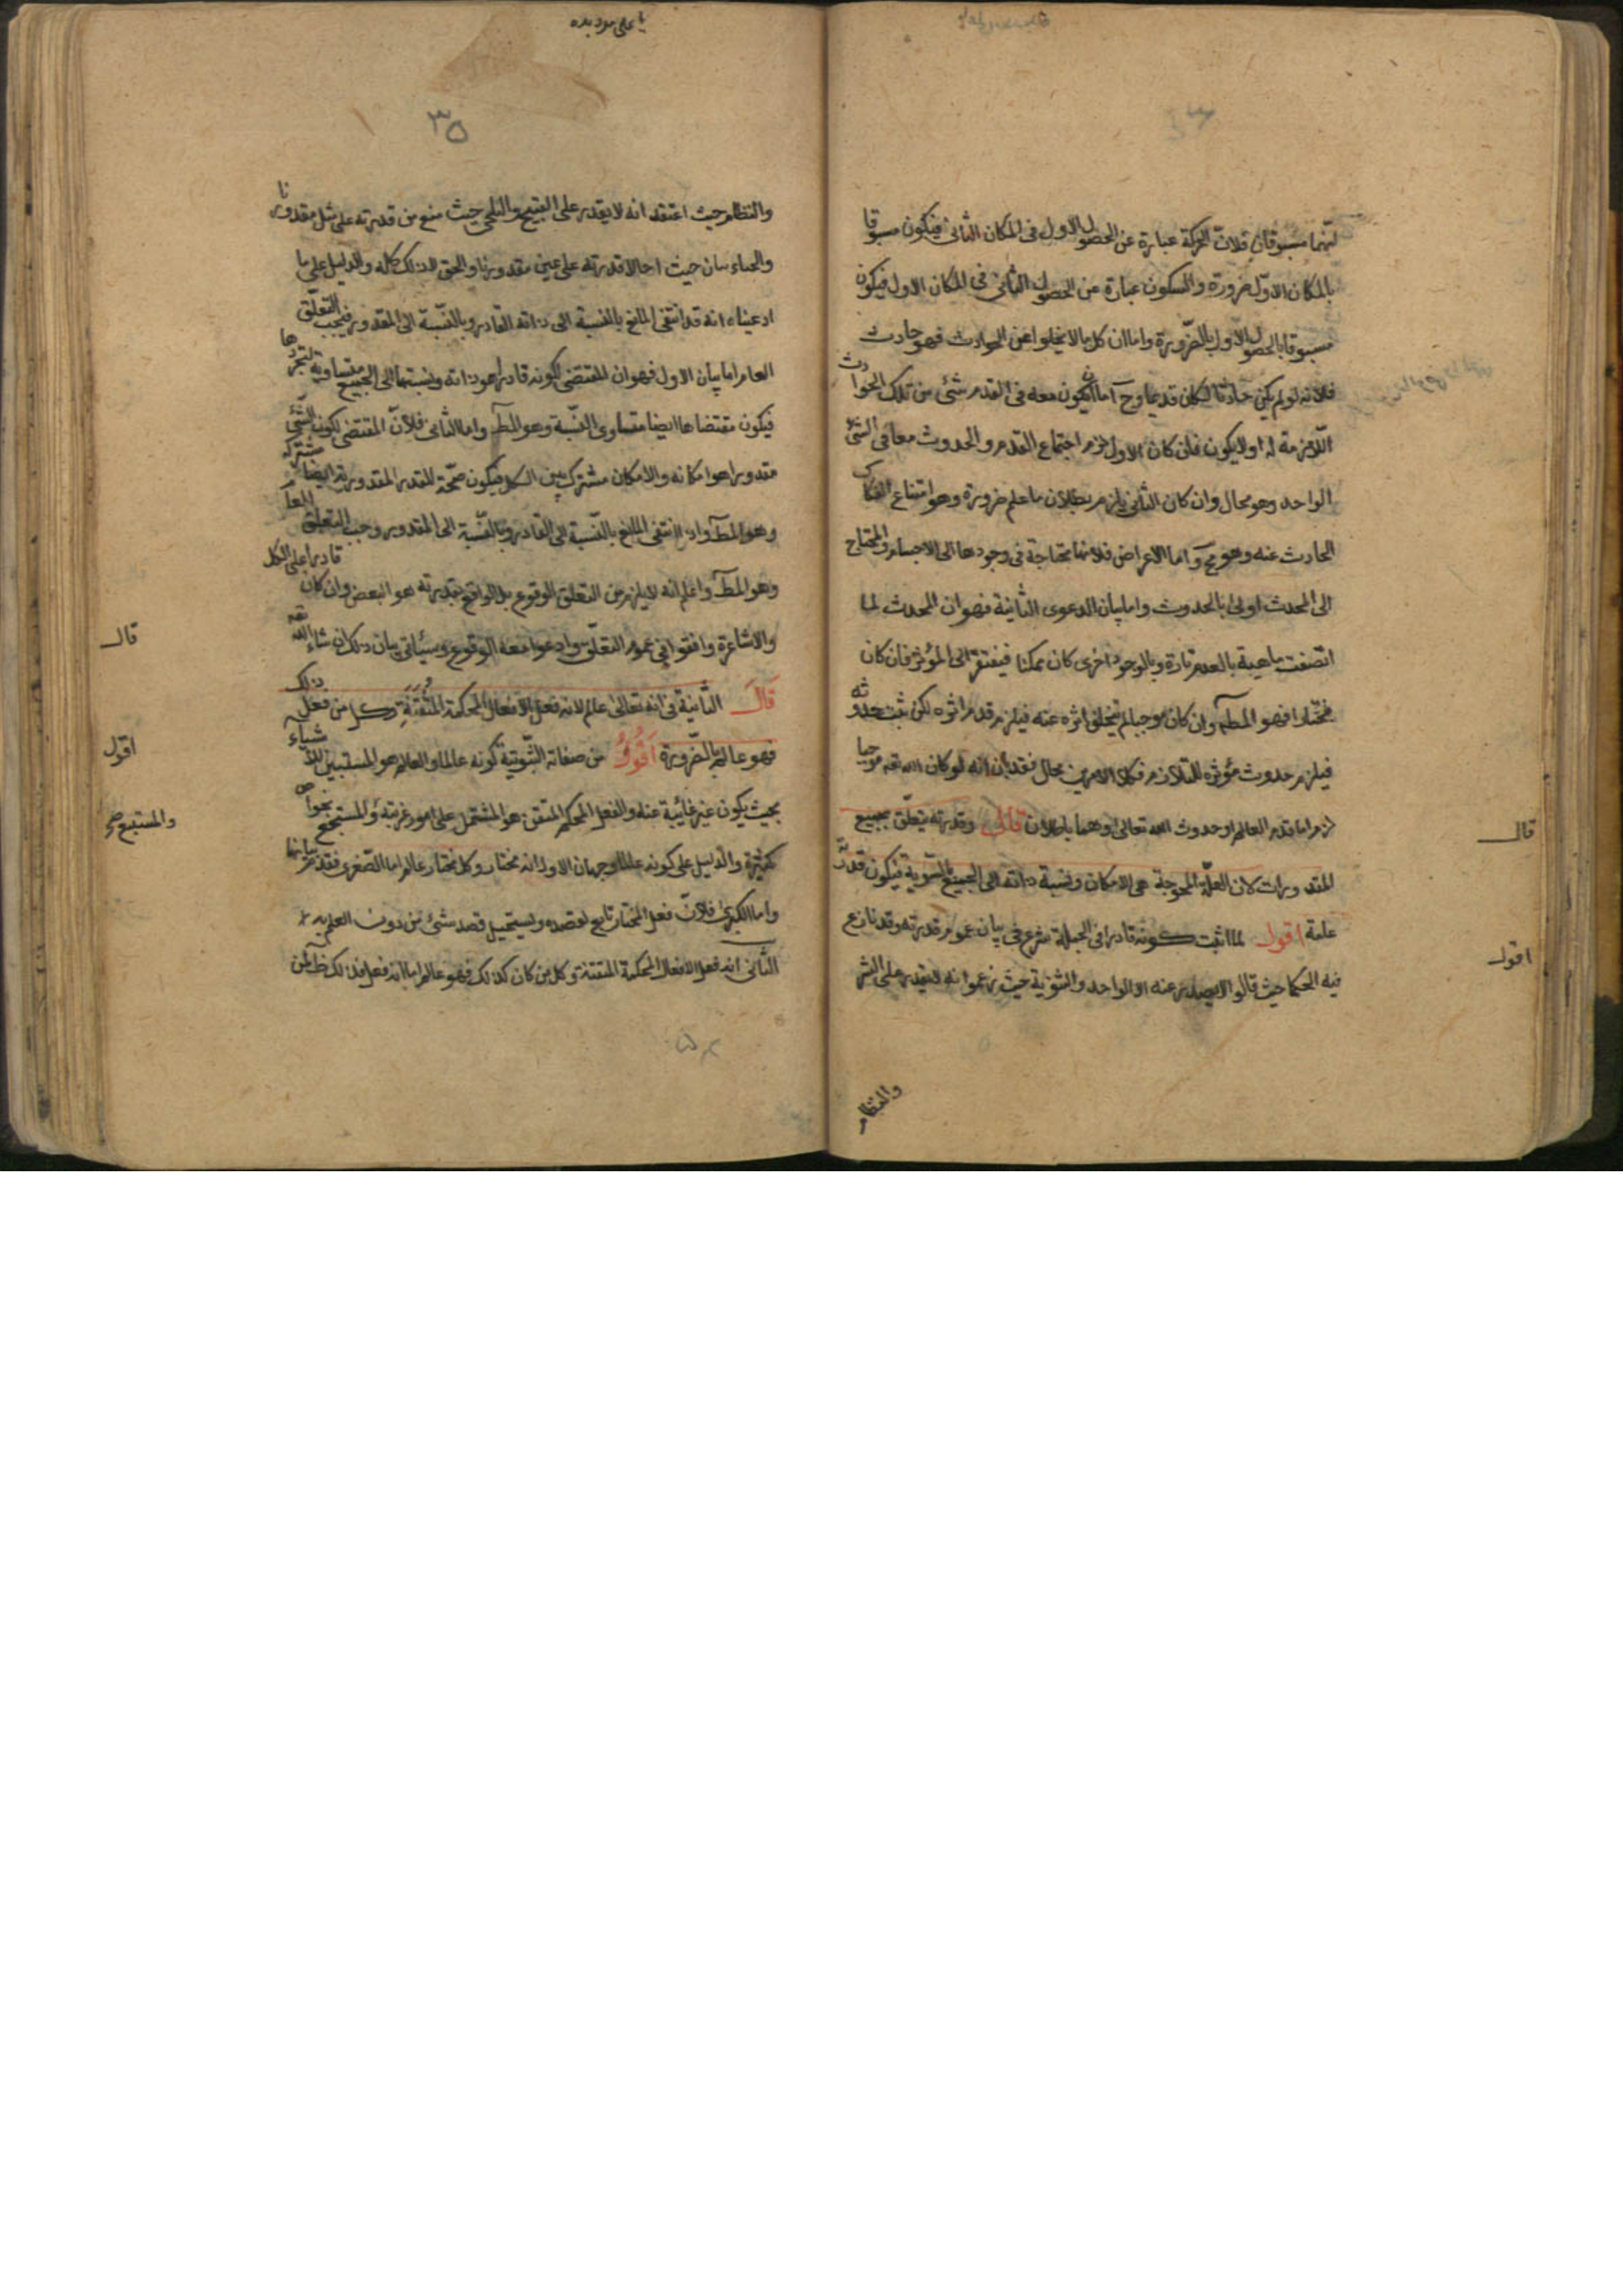 انهما مسبوقان فلانّ الحركة عبارة عن الحصول الاول فى المكان الثانى فيكون مسبوقا
بالمكان الاوّل ضرورة والسكون عبارة عن الحصول الثانى فى المكان الاول فيكون
مسبوقا بالحصول الاول بالضّرورة واما ان كل ما لا يخلوا عن الحوادث فهو حادث
فلانه لو لم يكن حادثا لكان قديما وح اما ان يكون معه فى القدم شئ من تلك الحوادث
اللّازمة له او لا يكون فان كان الاول لزم اجتماع القدم والحدوث معا فى الشئ
الواحد وهو محال وان كان الثانى يلزم بطلان ما علم ضرورة وهو امتناع انفكاك
الحادث عنه وهو مح واما الاعراض فلانها محتاجة فى وجودها الى الاجسام والمحتاج
الى المحدث اولى بالحدوث واما بيان الدعوى الثانية فهو ان المحدث لما
اتصفت ماهية بالعدم تارة وبالوجود اخرى كان ممكنا فيفتقر الى المؤثر فان كان
مختارا فهو المط وان كان موجبا لم يتخلق اثره عنه فيلزم قدم اثره لكن ثبت حدوثه
فيلزم حدوث مؤثره للتلازم فكلا الامرين محال فقد بان انه لو كان الله تعه موجبا
لزم اما قدم العالم او حدوث الله تعالى وهما باطلان قال وقدرته يتعلّق بجميع
المقدورات لان العلّة المحوجة هى الامكان ونسبة ذاته الى الجميع بالسّوية فيكون قدرته
عامة اقول لما اثبت كونه قادرا فى الجملة شرع فى بيان عموم قدرته وقد نازع
فيه الحكما حيث قالوا لا يصدر عنه الا الواحد والثنوية حيث زعموا انه لا يقدر على الشر
قال
اقول
والنظام
يا على مدد بده
٣٥
والنظام حيث اعتقد انه لا يقدر على القبيح والبلخى حيث منع من قدرته على مثل مقدورنا
والجباءيان حيث احالا قدرته على عين مقدورنا والحق خلاف ذلك كله والدليل على ما
ادعيناه انه قد انتفى المانع بالنسبة الى ذاته القادر وبالنّسبة الى المقدور فيجب التعلّق
العام اما بيان الاول فهو ان المقتضى لكونه قادرا هو ذاته ونسبتها الى الجميع متساوية لتجردها
فيكون مقتضاها ايضا متساوى النّسبة وهو المط واما الثانى فلانّ المقتضى لكون الشّئ
مقدورا هو امكانه والامكان مشترك بين الكل فيكون صحّة المقدورية ايضا مشتركه
وهو المط واذا انتفى المانع بالنّسبة الى القادر وبالنّسبة الى المقدور وجب التعلق العام
وهو المط واعلم انه لا يلزم من التعلق الوقوع بل الواقع بقدرته هو البعض وان كان قادرا على الكل
والاشاعرة وافقوا فى عموم التعلّق وادعوا معه الوقوع وسيأتى بيان ذلك ان شاء الله تعه
قال الثّانية فى انه تعالى عالم لانه فعل الافعال المحكمة المتقنة وكل من فعل ذلك
فهو عالم بالضّرورة اقول من صفاته الثّبوتية كونه عالما والعالم هو المتبين للاشياء
بحيث يكون غير غائبة عنه والفعل المحكم المتقن هو المشتمل على امور غريبة والمستجمع بخواص
كثيرة والدليل على كونه عالما وجهان الاول انه مختار وكل مختار عالم اما الصّغرى فقد مر بيانها
واما الكبرى فلانّ فعل المختار تابع لقصده ويستحيل قصد شئ من دون العلم به
الثّانى انه فعل الافعال المحكمة المتقنة وكل من كان كذلك فهو عالم اما انه فعل ذلك فظ لمن
قال
اقول
والمستتبع صح